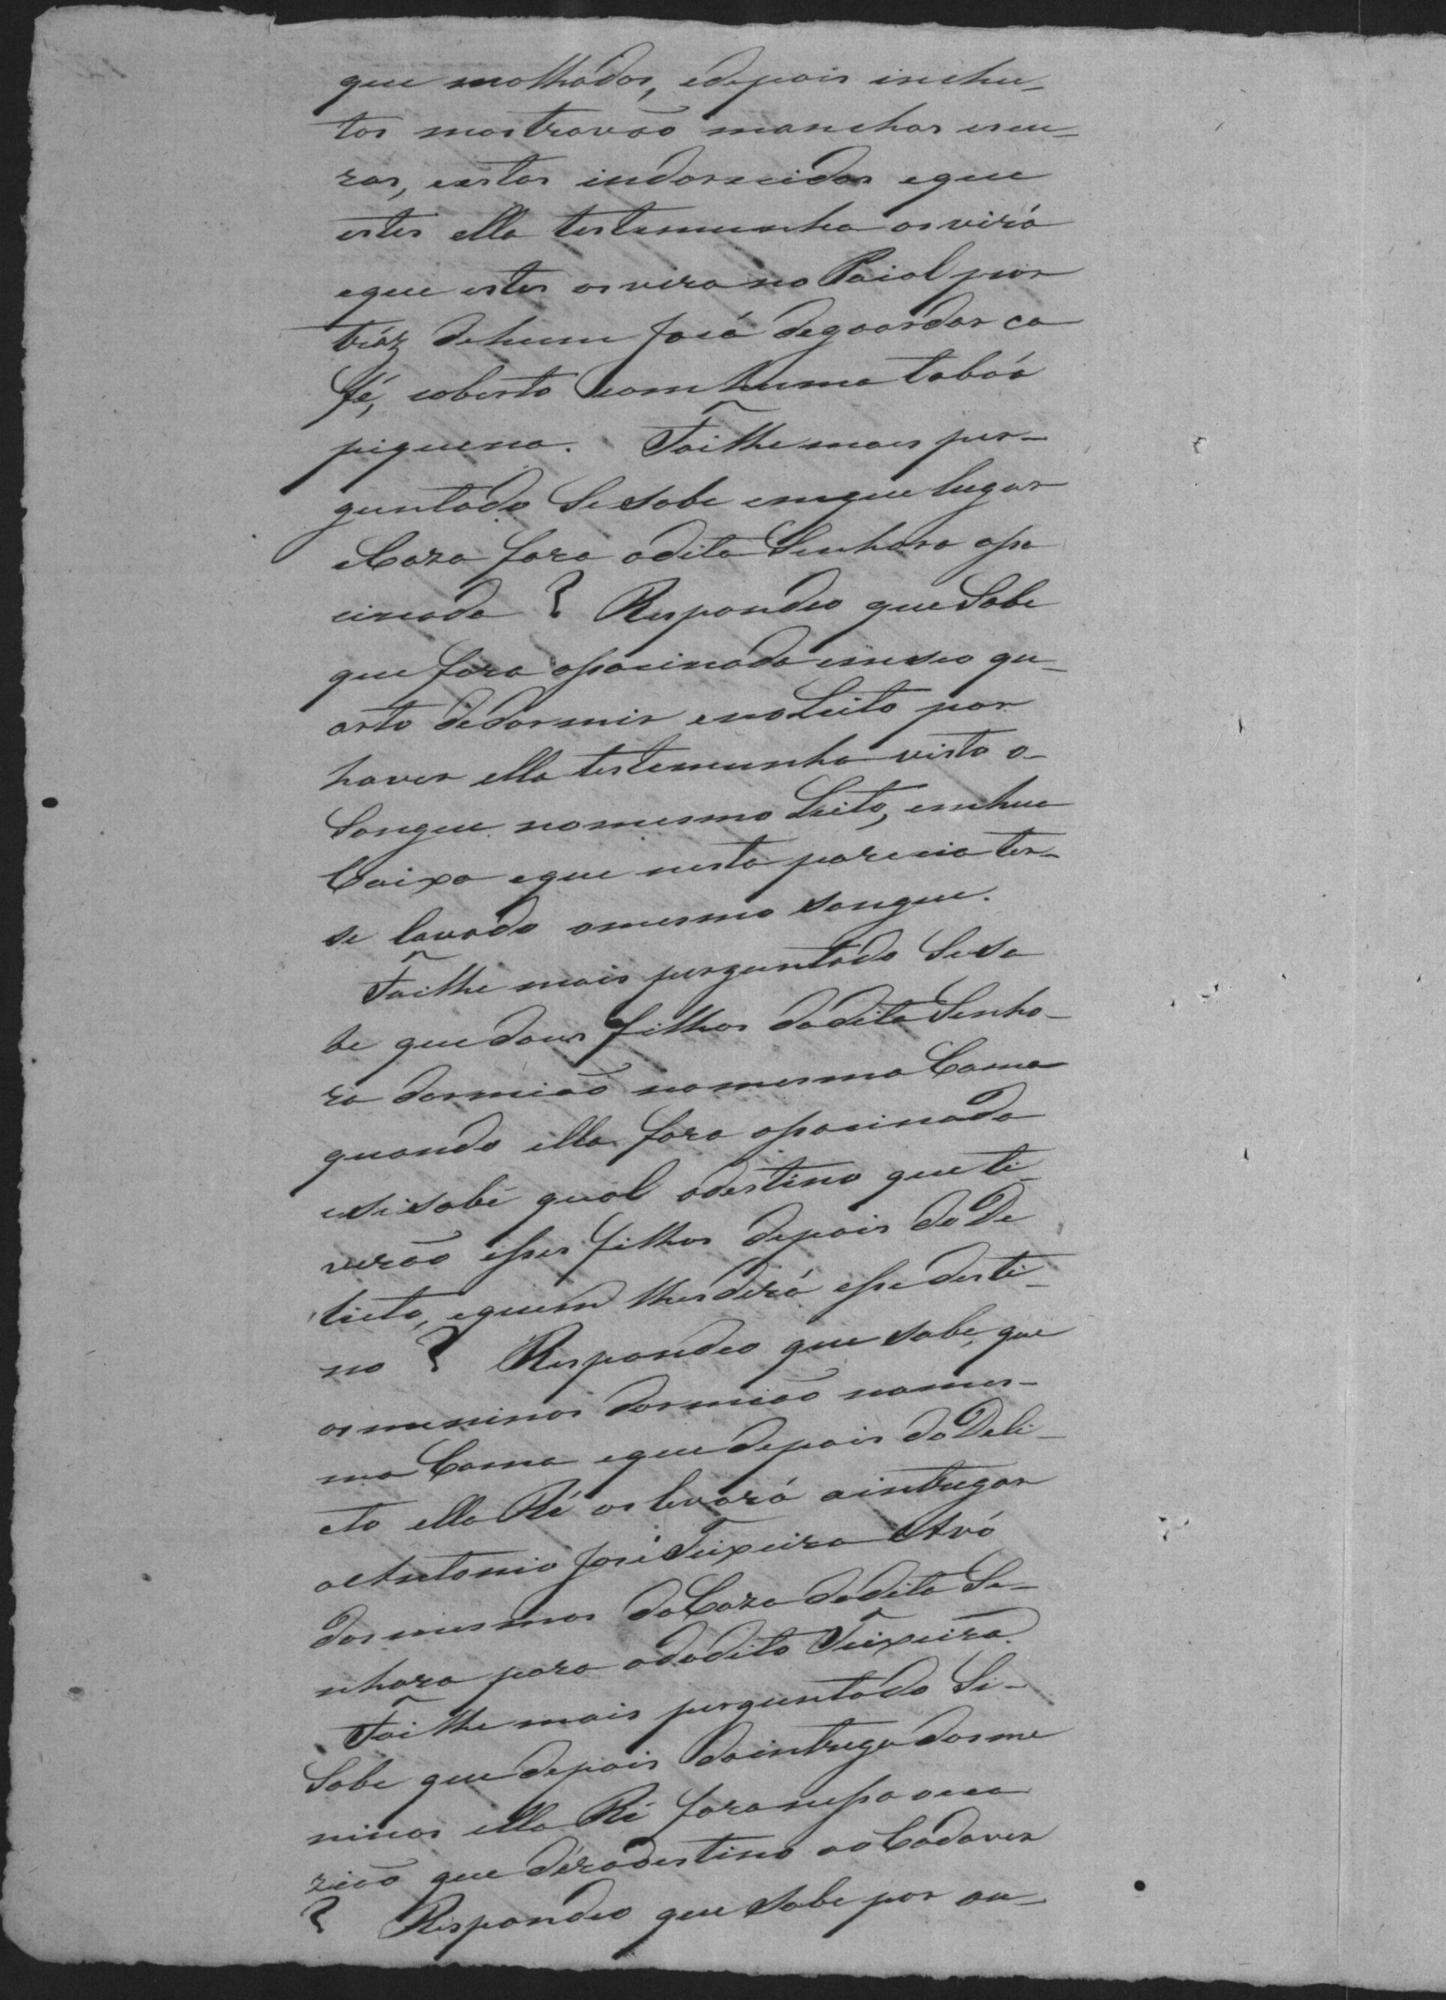 que molhados, edepois inchu-
tos mostravaõ manchas escu-
ras, estas indorecidas eque
estes ella testemunha os virá
eque estes os vira no Paiol por
tráz dehum Jacá deguardar ca
fé, coberto com huma taboa
piquena. Foilhe mais per-
guntado Sesabe emque lugar
eCaza fora adita Senhora asa
cinada ? Respondeo que Sabe
que fora asacinada emseo qu-
arto dedormir enoLeito por
haver ella testemunha visto o-
Sangue nomesmo Leito, emhua
Caixa eque nesta parecia ter-
se lavado omesmo sangue.
Foilhe mais perguntado Sesa
be que dous filhos dadita Senho-
ra dormiaõ namesma Cama
quando ella fora asacinada
eSisabe qual odestino que ti-
veraõ esses filhos depois do De
licto, equem lhesdéra esse desti-
no ? Respondeo que sabe, que
osmeninos dormiaõ names-
ma Cama eque depois do Deli-
cto ella Ré os levará aintregar
aAntonio José Teixeira Avó
dosmesmos daCaza dadita Se-
nhora para adodito Teixeira.
Foilhe mais perguntado Si-
Sabe que depois daintrega dosme
ninos ella Ré fora nessa oca
ziaõ que déra destino ao Cadaver
? Respondeo que Sabe por ou-